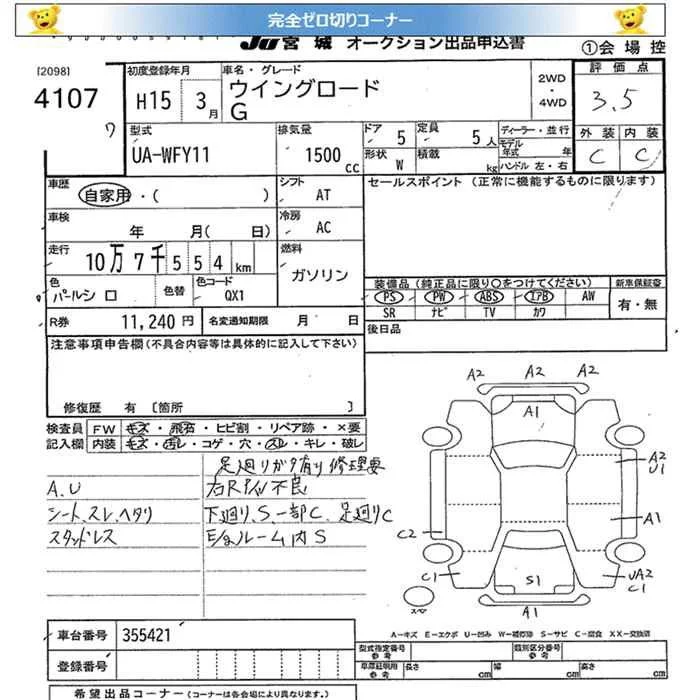 完全ゼロ切りコーナー
JU宮城 オークション出品申込書
①会場控
[2098]
4107
ワ
初度登録年月
H15 3月
車名・グレード
ウイングロード
G
2WD
・
4WD
評価点
3.5
外装 内装
C C
型式
UA-WFY11
排気量
1500
cc
ドア 5
定員 5人
形状 W
積載 kg
ディーラー・並行
モデル年式 年
ハンドル 左・右
車歴
自家用・( )
シフト
AT
セールスポイント(正常に機能するものに限ります)
車検
年 月( 日)
冷房
AC
走行
10万7千554km
燃料
ガソリン
色
パールシロ
色替
色コード
QX1
装備品(純正品に限り○をつけてください)
新車保証書
PS PW ABS エアB AW
SR ナビ TV カワ
有・無
R券 11,240円
名変通知期限 月 日
後日品
注意事項申告欄(不具合内容等は具体的に記入して下さい)
修復歴 有 [箇所 ]
検査員記入欄
FW キズ・飛石・ヒビ割・リペア跡・×要
内装 キズ・汚レ・コゲ・穴・スレ・キレ・破レ
足廻りガタ有り修理要
A.U
シート、スレ、ヘタリ
下廻り、S、一部C、足廻りC
スタッドレス
A2 A2 A2
A1
A2
U1
A1
C2
C1
S1
UA2
C1
A1
スペ
A-キズ E-エクボ U-凹み W-補修跡 S-サビ C-腐食 XX-交換済
車台番号 355421
登録番号
型式指定番号 参考
類別区分番号 参考
車庫証明用 参考
長さ cm
幅 cm
高さ cm
希望出品コーナー(コーナーは各会場により異なります。)